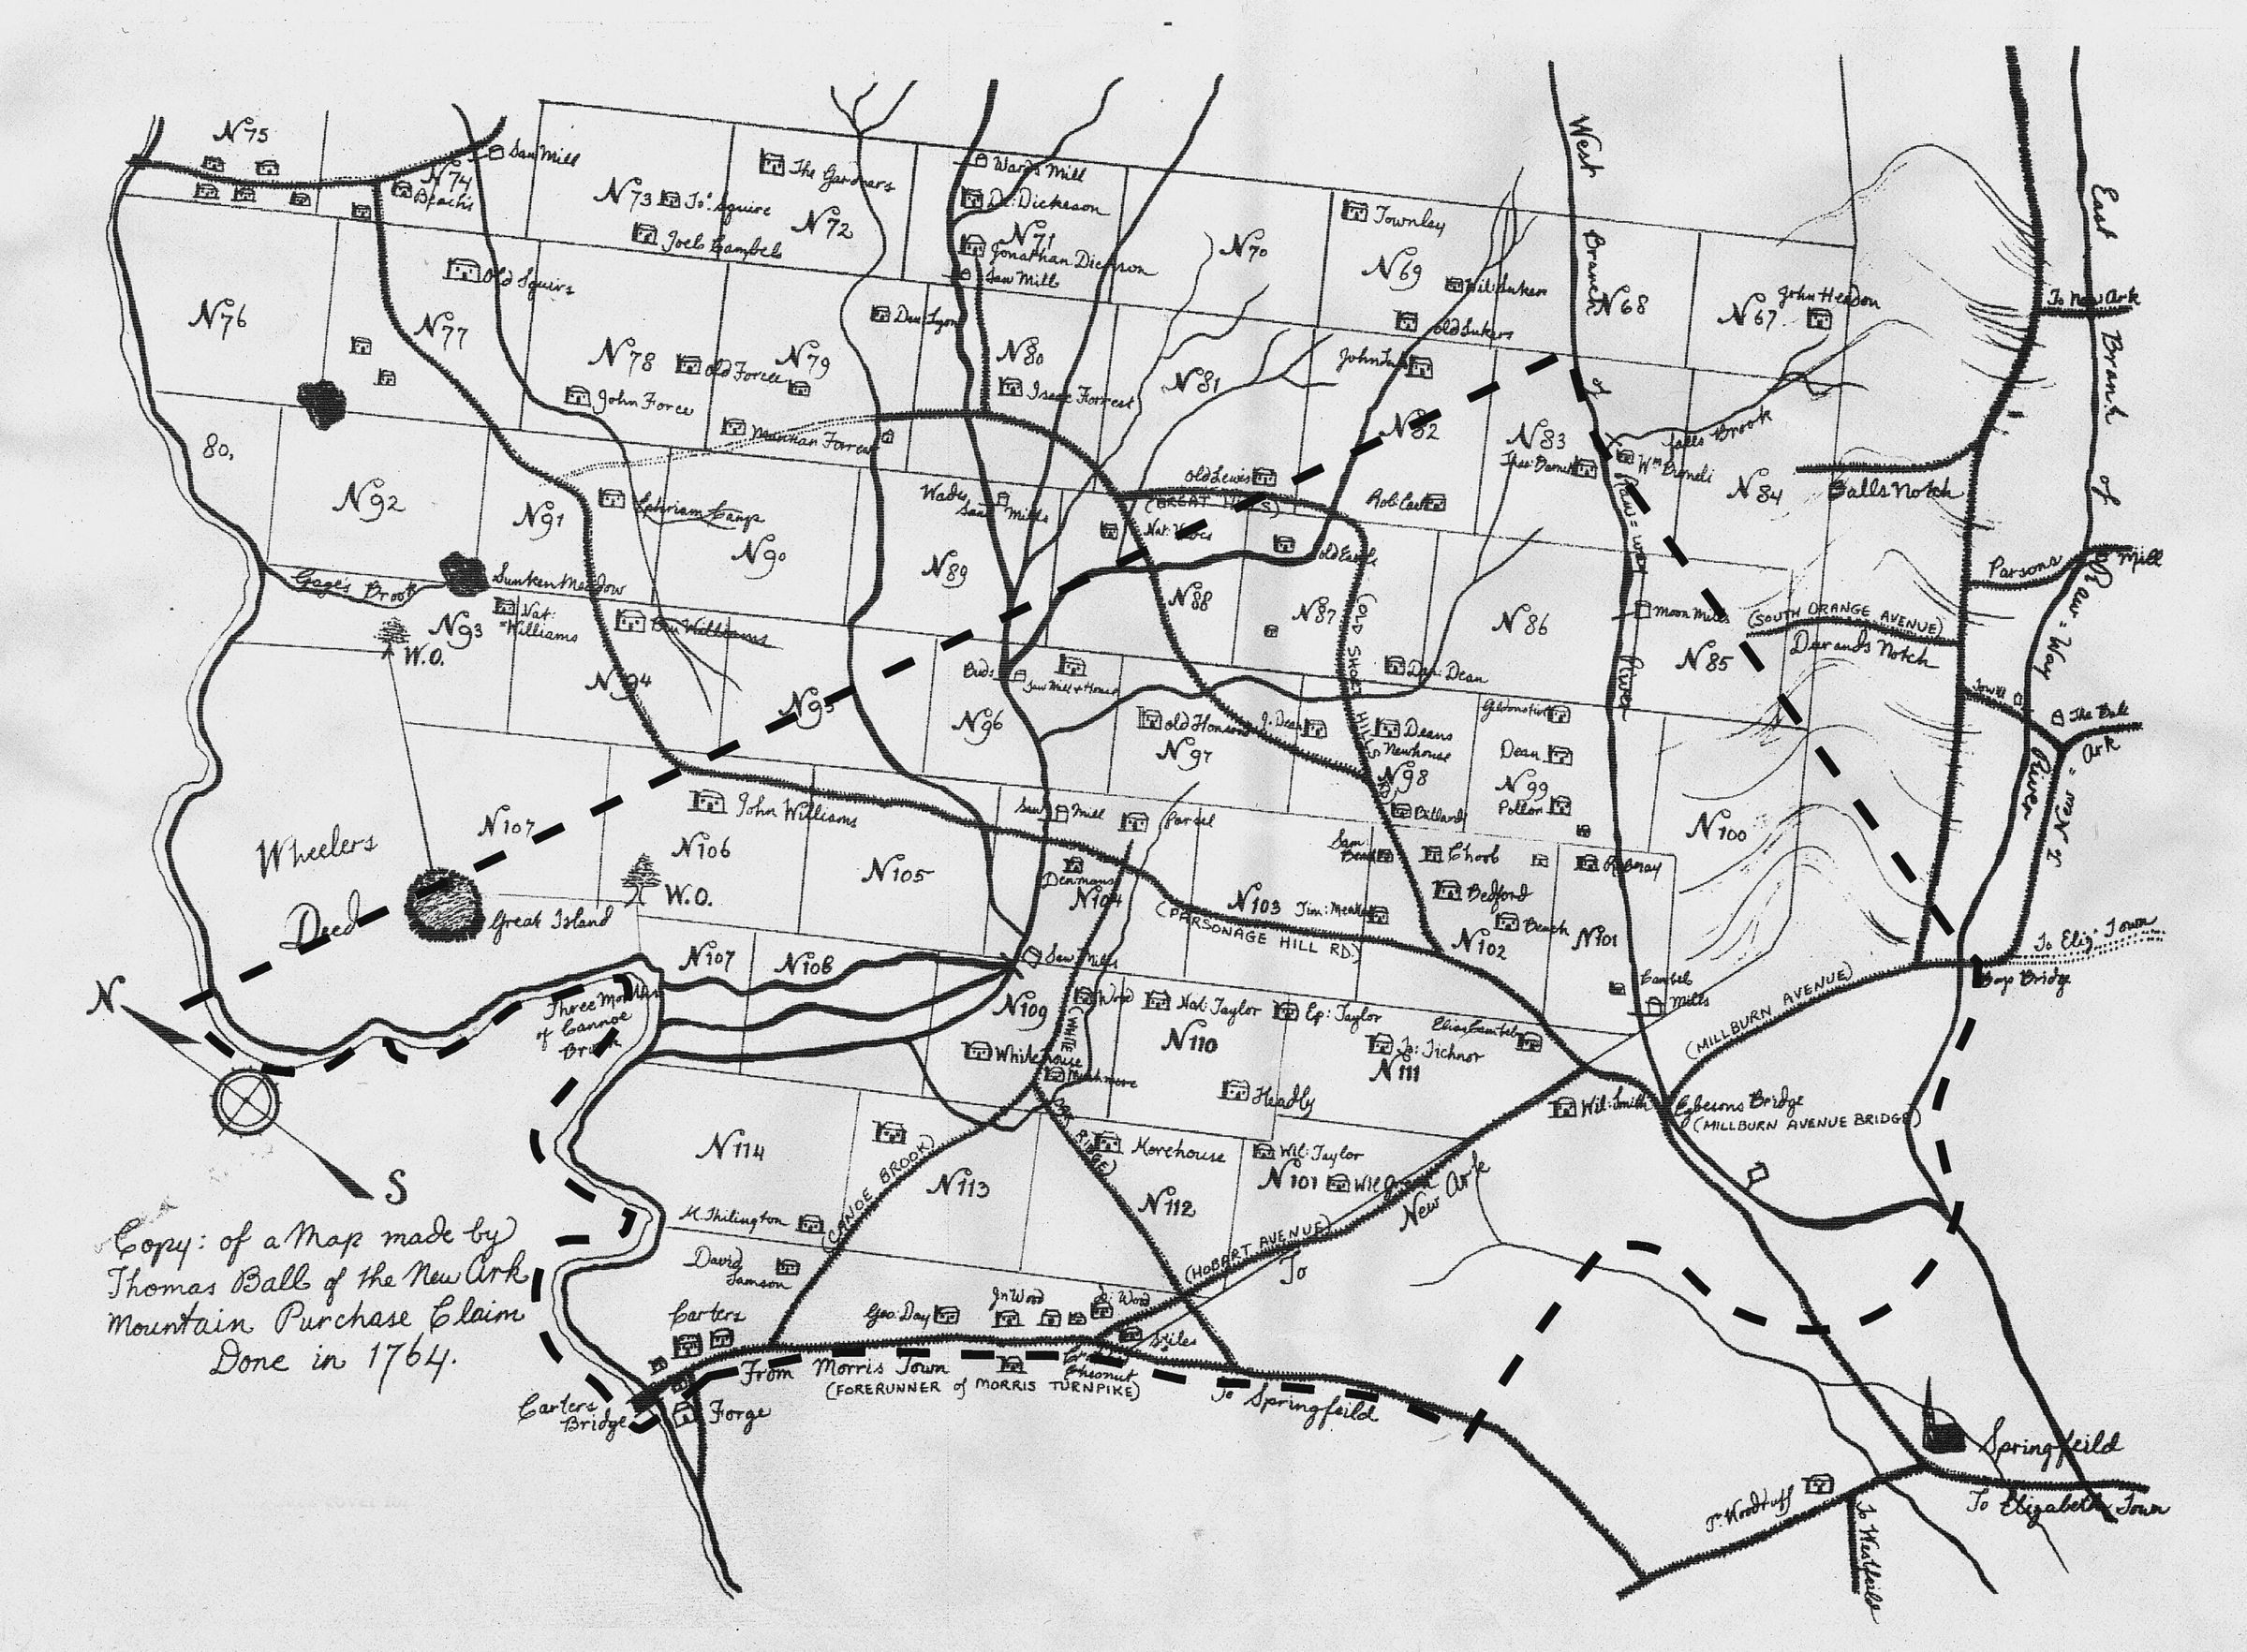 N75
Saw Mill
N74
Beach's
N73
Jo: Squire
The Gardners
N72
Joels Cambels
Wards Mill
Da: Dickeson
N71
Jonathan Dickeson
Saw Mill
N70
Townley
N69
Wil: Sukers
old Sukers
West
Branch
of
Raw=way
River
N68
N67
John Headon
East
Branch
of
Raw=Way
River
To New Ark
Old Squirs
N76
N77
N78
Old Force
N79
John Force
Dan Lyon
N80
Isaac Forrest
N81
N82
N83
Falls Brook
N84
Balls Notch
80,
N92
N91
Ephriam Camp
N90
Wades
Saw Mills
N89
old Lewis
(GREAT HILLS)
N88
N87
(OLD SHORT HILLS RD.)
N86
Moon Mills
(SOUTH ORANGE AVENUE)
Durands Notch
N85
Parsons Mill
Gage's Brook
Sunken Meadow
Nat:
Williams
N93
W.O.
N94
N95
Buds
Saw Mill & House
N96
N97
J. Dean
Dan: Dean
Deans
Newhouse
N98
Dean
N99
Ballard
N100
The Ball
Ark
N107
Wheelers
Deed
Great Island
John Williams
N106
W.O.
N105
Saw Mill
Parcel
Denmans
N104
(PARSONAGE HILL RD.)
N103
Jim: Meaker
Bedford
Beach
N102
N101
Cambels
Mills
N107
N108
Saw Mills
Three Mouths
of Cannoe
Brook
N109
Wood
Nat: Taylor
Ep: Taylor
N110
Elias Cambels
Jo: Tichnor
N111
Whitehouse
Headly
(WHITE OAK RIDGE)
(MILLBURN AVENUE)
To Eliz: Town
Bays Bridge
Wil: Smith
(MILLBURN AVENUE BRIDGE)
N
S
N114
(CANOE BROOK)
N113
Morehouse
N112
Wil: Taylor
N101
(HOBART AVENUE)
To
New Ark
David
Samson
Carters
Geo: Day
Jn Wood
Stiles
Chesnut
From Morris Town
(FORERUNNER of MORRIS TURNPIKE)
To Springfeild
Carters
Bridge
Forge
Springfeild
To Elizabeth Town
To Westfeild
Copy: of a Map made by
Thomas Ball of the New Ark
Mountain Purchase Claim
Done in 1764.